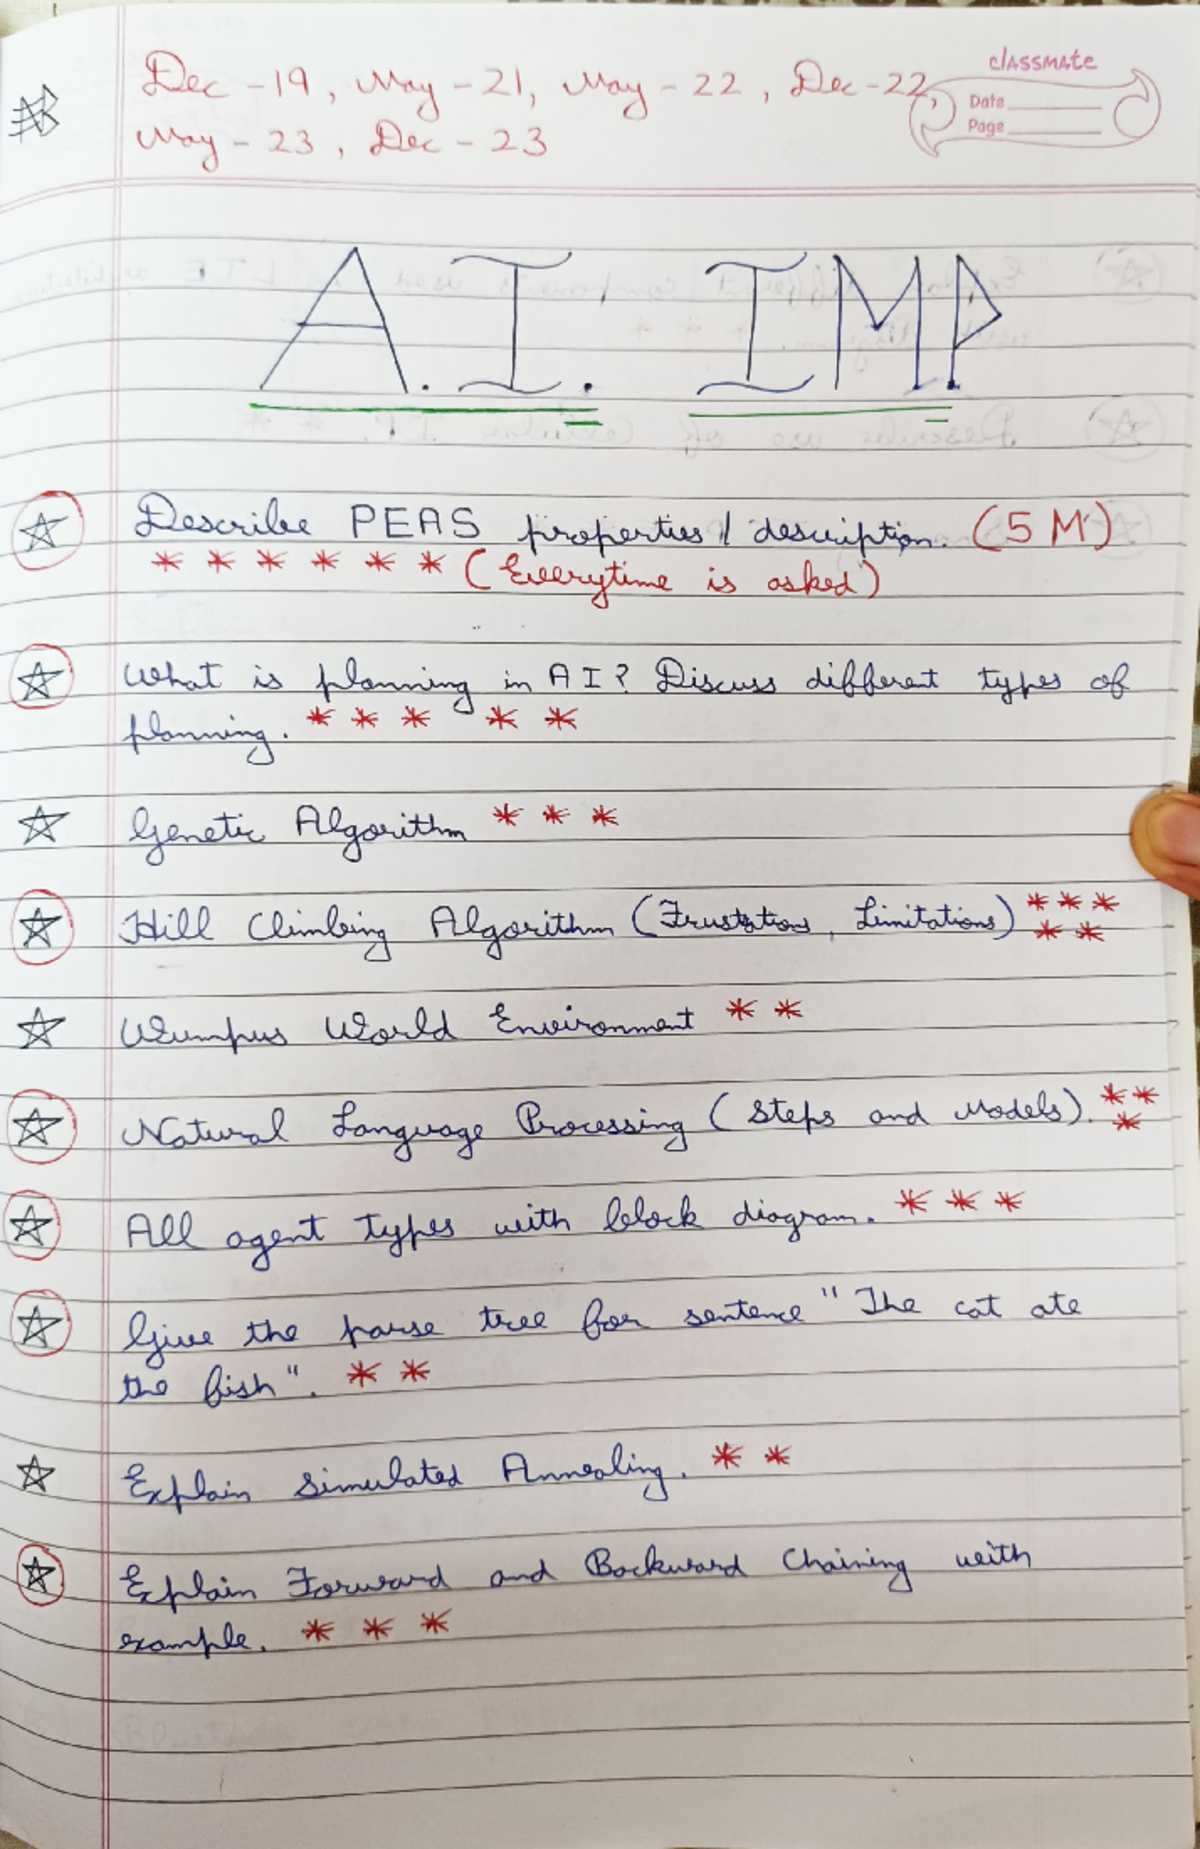 Dec - 19, May - 21, May - 22, Dec - 22,
May - 23, Dec - 23
classmate
Date
Page
A.I. IMP.
Describe PEAS properties / description. (5 M)
* * * * * * (Everytime is asked)
What is planning in AI? Discuss different types of
planning. * * * * *
Genetic Algorithm * * *
Hill Climbing Algorithm (Frustations, Limitations) * * *
* *
Wumpus World Environment * *
Natural Language Processing (Steps and Models). * *
*
All agent types with block diagram. * * *
Give the parse tree for sentence "The cat ate
the fish". * *
Explain Simulated Annealing. * *
Explain Forward and Backward Chaining with
example. * * *